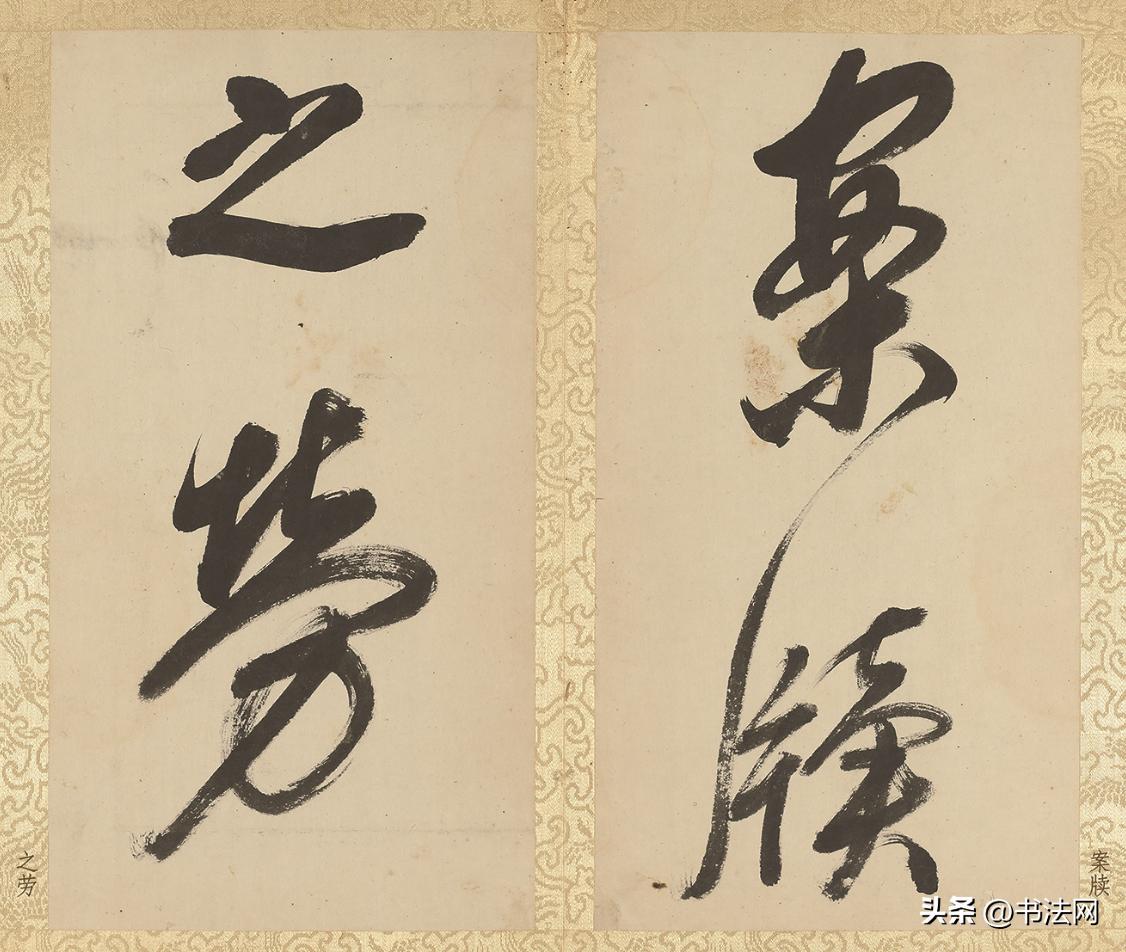 案牘
之勞
案牍
之劳
头条 @书法网